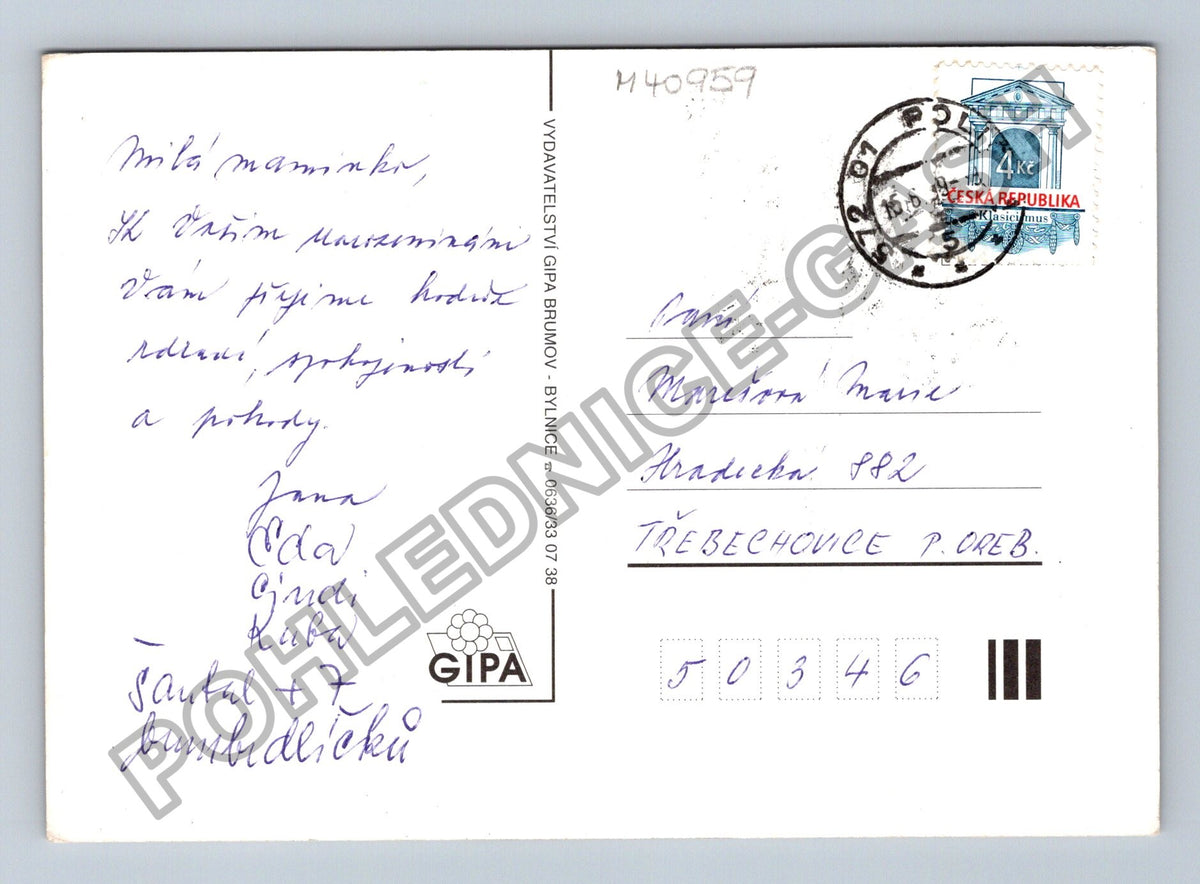 Milá maminko,
K Vašim narozeninám
Vám přejeme hodně
zdraví, spokojenosti
a pohody.
Jana
Eda
Jindi
Kuba
Šantal + 7
bumbrdlíčků
VYDAVATELSTVÍ GIPA BRUMOV - BYLNICE ☎ 0636/33 07 38
GIPA
M40959
4 Kč
ČESKÁ REPUBLIKA
Klasicismus
572 01 POLI
Paní
Marešová Marie
Hradecká 882
TŘEBECHOVICE P. OREB.
50346
POHLEDNICE-GASH